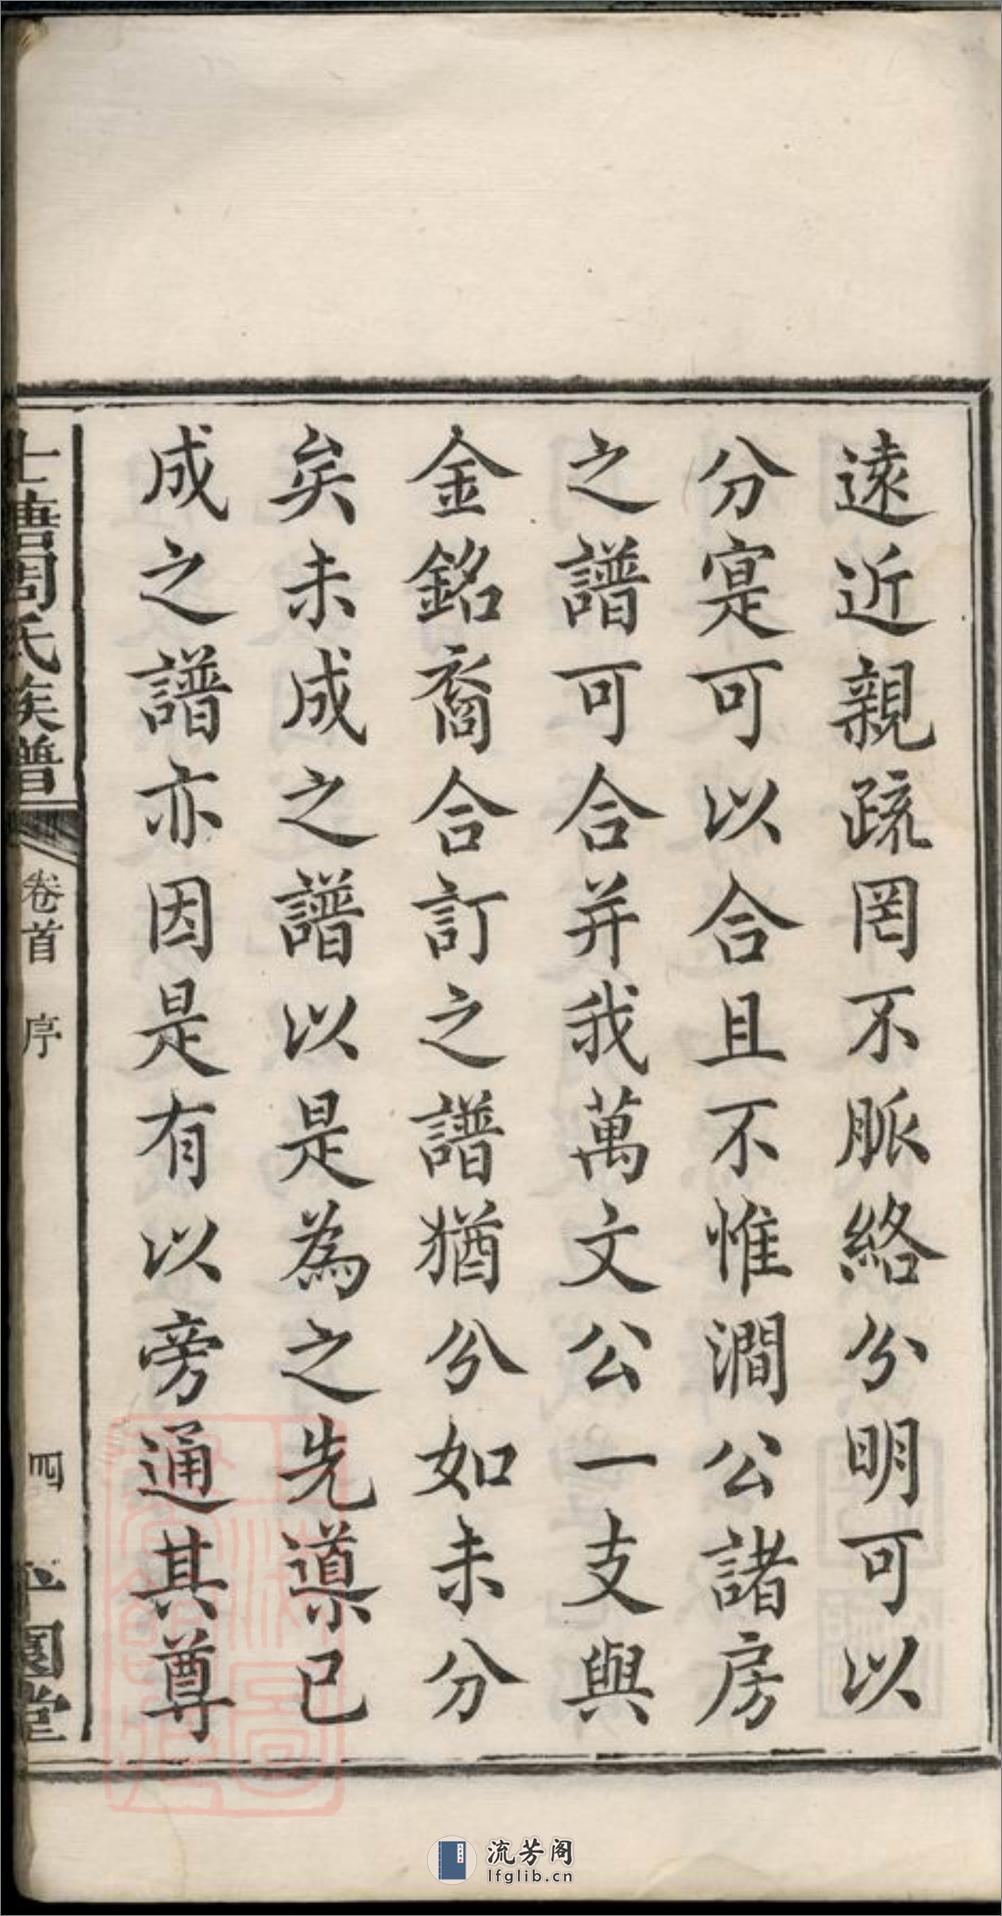 遠近親疏罔不脈絡分明可以
分寔可以合且不惟澗公諸房
之譜可合并我萬文公一支與
金銘裔合訂之譜猶分如未分
矣未成之譜以是為之先導已
成之譜亦因是有以旁通其尊
塘周氏族譜
卷首 序
四
園堂
流芳阁
lfglib.cn